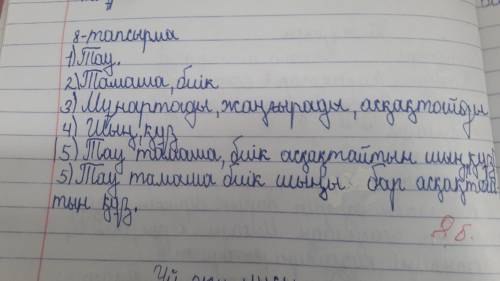 8-тапсырма
1) Тау.
2) Тамаша, биік
3) Мұнартады, жаңғырады, асқақтайды
4) Шың, құз
5) Тау тамаша, биік асқақтайтын шың, құз.
5) Тау тамаша биік шыңы бар асқақтай
тын құз.
8б.